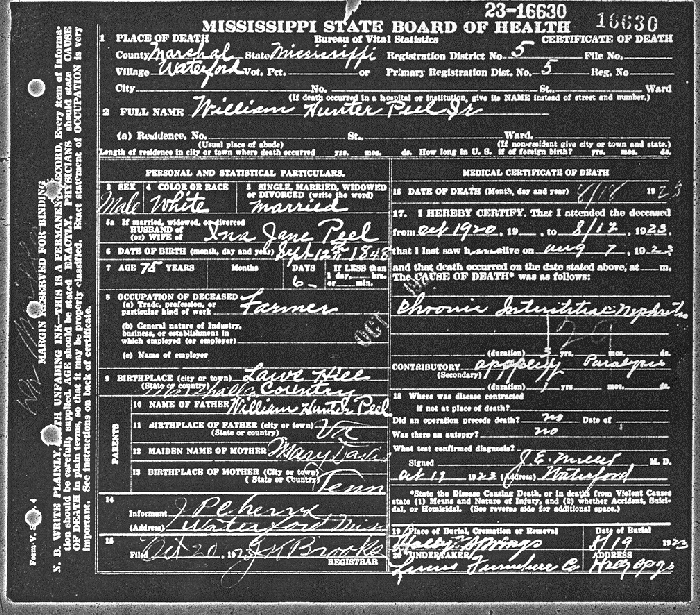 23-16630
16630
MISSISSIPPI STATE BOARD OF HEALTH
Bureau of Vital Statistics
CERTIFICATE OF DEATH
1 PLACE OF DEATH
County Marshal State Mississippi Registration District No. 5 File No.
Village Waterford Vot. Pct. or Primary Registration Dist. No. 5 Reg. No.
City No. St. Ward
(If death occurred in a hospital or institution, give its NAME instead of street and number.)
2 FULL NAME William Hunter Peel Jr
(a) Residence, No. St. Ward.
(Usual place of abode) (If nonresident give city or town and state.)
Length of residence in city or town where death occurred yrs. mos. ds. How long in U. S. if of foreign birth? yrs. mos. ds.
PERSONAL AND STATISTICAL PARTICULARS.
3 SEX 4 COLOR OR RACE 5 SINGLE, MARRIED, WIDOWED
OR DIVORCED (write the word)
Male White married
5a If married, widowed, or divorced
HUSBAND of
(or) WIFE of Ina Jane Peel
6 DATE OF BIRTH (month, day and year) Sept 12th 1848
7 AGE 75 YEARS Months DAYS If LESS than
1 day, hrs.
or min.
6
8 OCCUPATION OF DECEASED
(a) Trade, profession, or
particular kind of work Farmer
(b) General nature of Industry,
business, or establishment in
which employed (or employer)
(c) Name of employer
9 BIRTHPLACE (city or town) Laws Hill
(State or country) Marshall County
PARENTS
10 NAME OF FATHER William Hunter Peel
11 BIRTHPLACE OF FATHER (city or town)
(State or country) Va
12 MAIDEN NAME OF MOTHER Mary
13 BIRTHPLACE OF MOTHER (City or town)
(State or Country) Tenn
14
Informant
(Address) Waterford Miss
15
Filed Oct 20, 19 Brooks
REGISTRAR
MEDICAL CERTIFICATE OF DEATH
16 DATE OF DEATH (Month, day and year) 8/18 1923
17. I HEREBY CERTIFY, That I attended the deceased
from Oct 1920, 19 , to 8/17, 1923,
that I last saw h alive on Aug 7, 1923
and that death occurred on the date stated above, at m.
The CAUSE OF DEATH* was as follows:
Chronic Interstitial Nephritis
(duration) yrs. mos. ds.
CONTRIBUTORY apoplexy Paralysis
(Secondary)
(duration) yrs. mos. ds.
18 Where was disease contracted
if not at place of death?
Did an operation precede death? no Date of
Was there an autopsy? no
What test confirmed diagnosis?
Signed J. E. M. D.
Oct 19 1923 (Address) Waterford
*State the Disease Causing Death, or in deaths from Violent Causes
state (1) Means and Nature of Injury, and (2) whether Accident, Suici-
dal, or Homicidal. (See reverse side for additional space.)
19 Place of Burial, Cremation or Removal Date of Burial
Holly Springs 8/19 1923
20 UNDERTAKER ADDRESS
Furniture Co
MARGIN RESERVED FOR BINDING
N. B. WRITE PLAINLY, WITH UNFADING INK—THIS IS A PERMANENT RECORD. Every item of informa-
tion should be carefully supplied. AGE should be stated EXACTLY. PHYSICIANS should state CAUSE
OF DEATH in plain terms, so that it may be properly classified. Exact statement of OCCUPATION is very
important. See instructions on back of certificate.